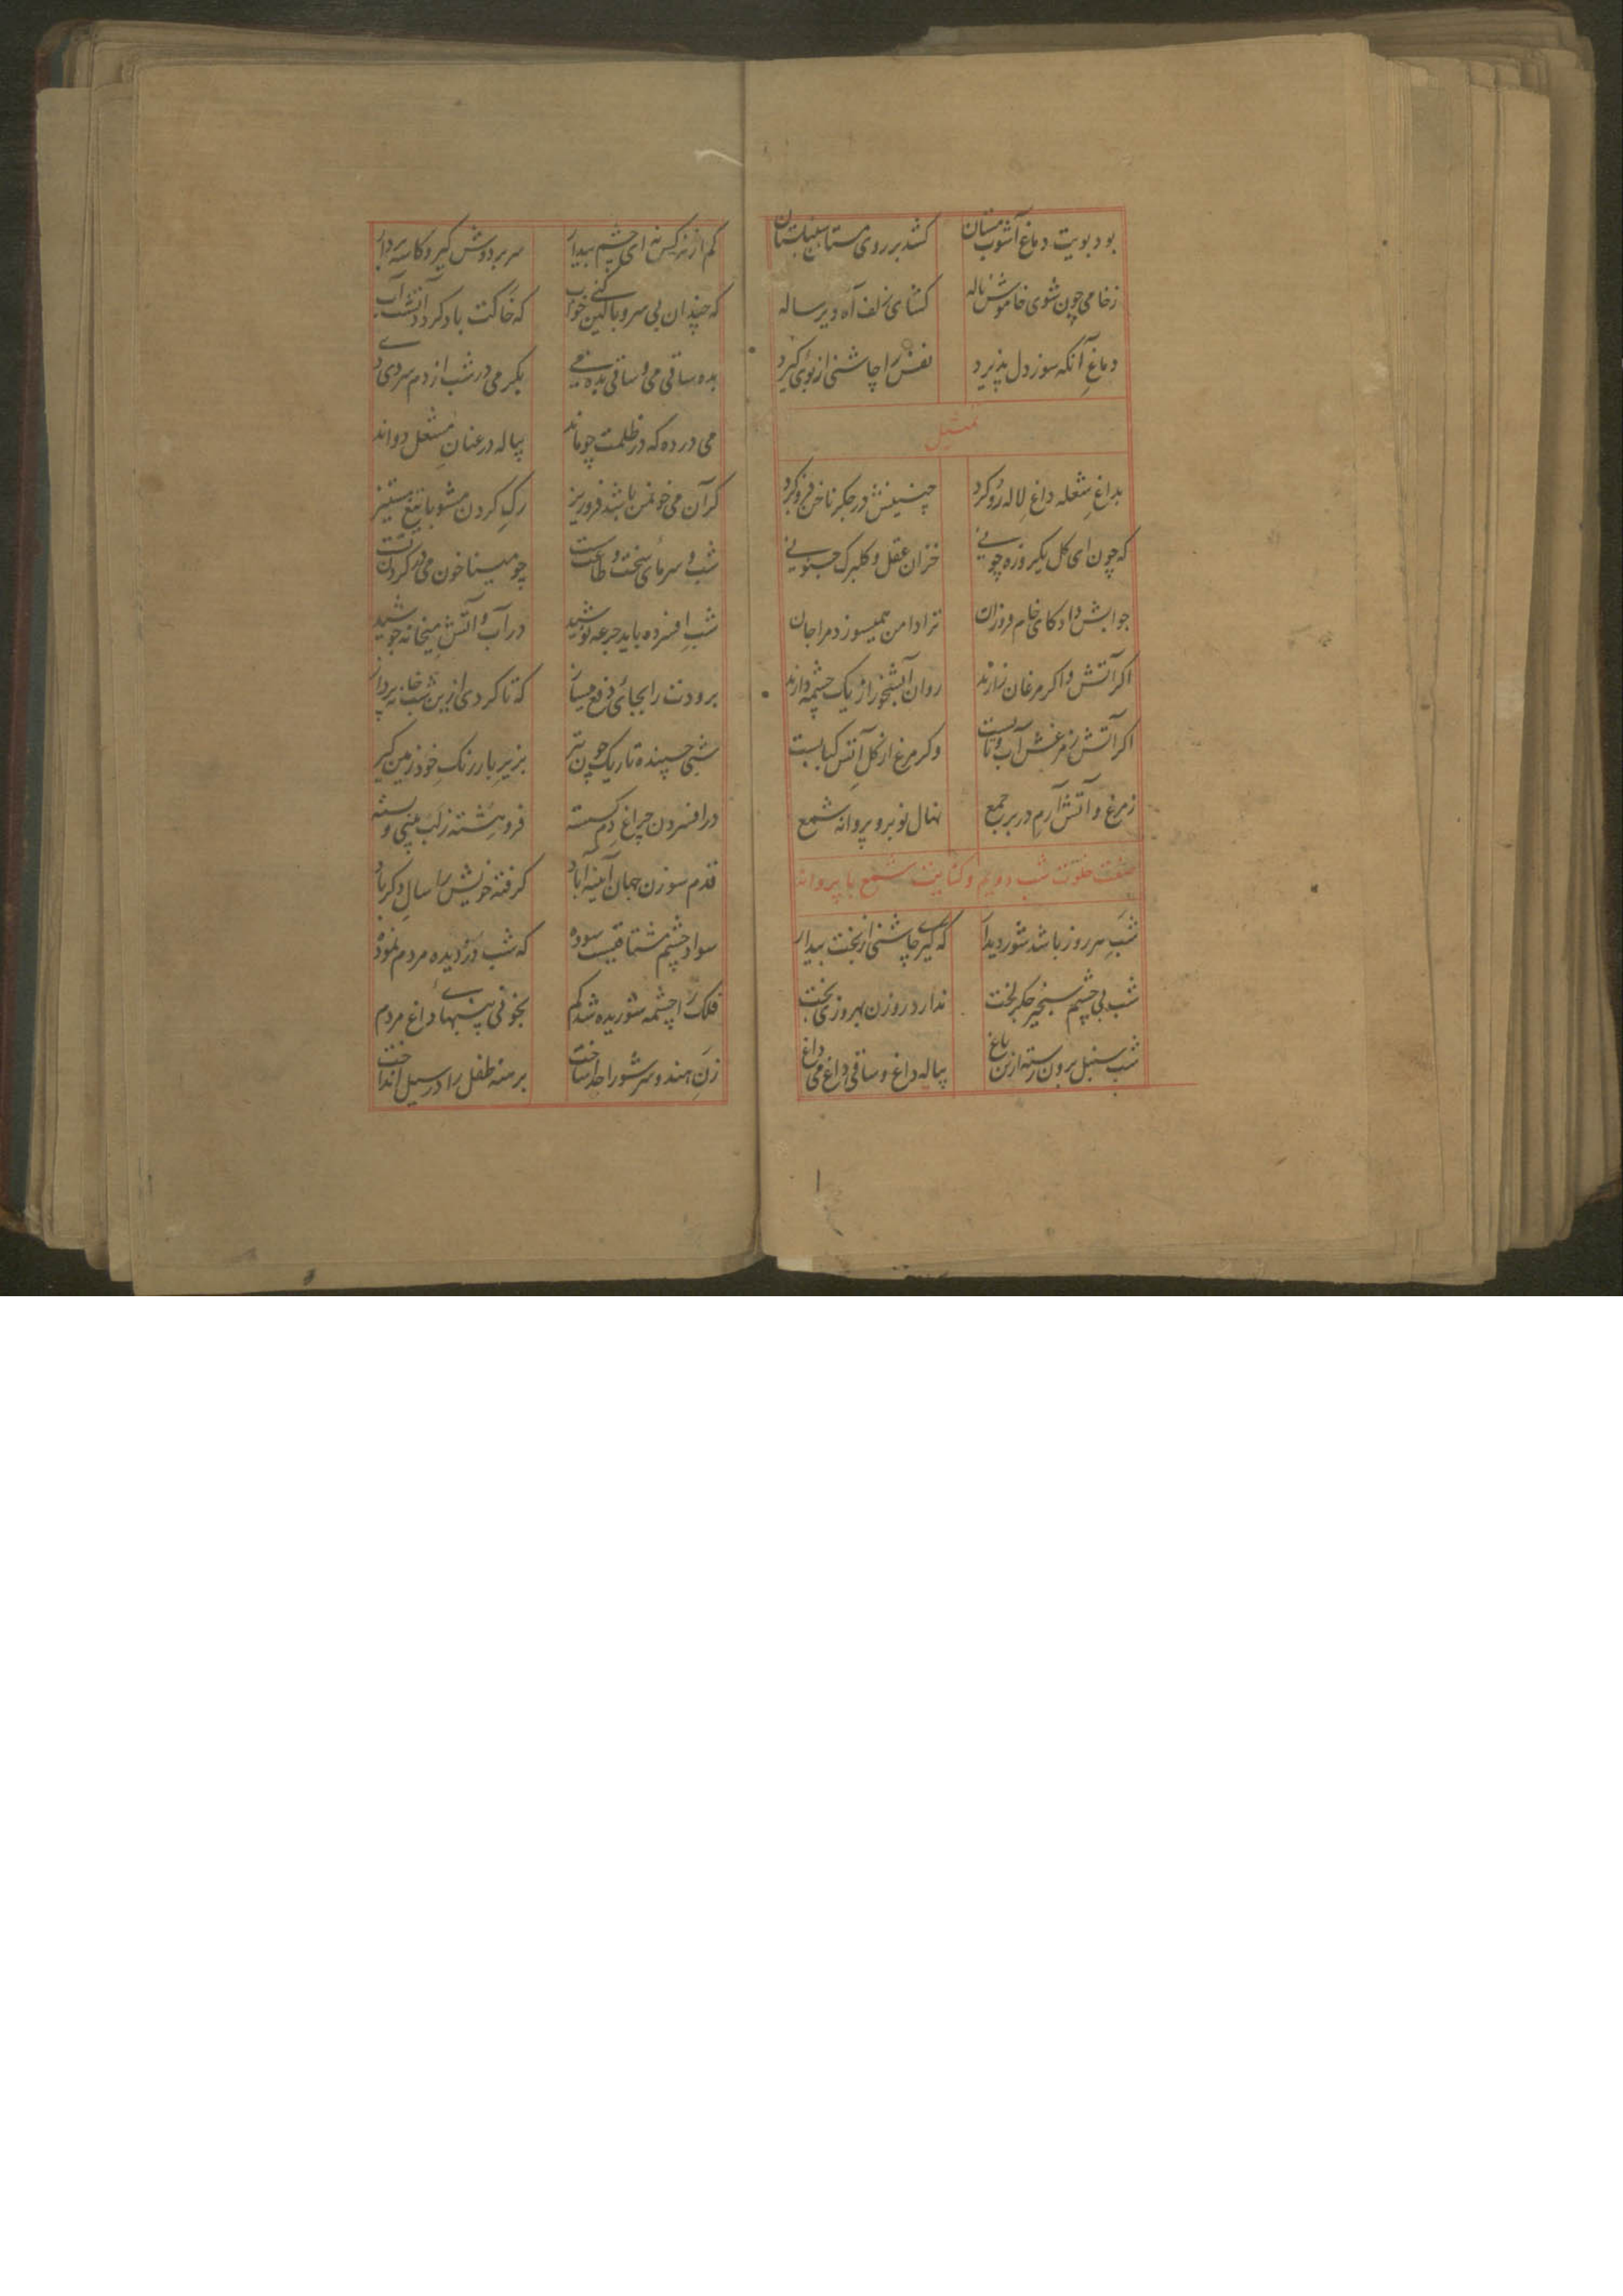 بود بویت دماغ آشوب مستان کشد بر روی مستان
زخامی چون شوی خاموش ناله کشای زلف آه دیر ساله
دماغ آنکه سوز دل پذیرد نفس را چاشنی از بوی گیرد
تمثیل
بداغ شعله داغ لاله رو کرد چنینش در جگر ناخن فرو کرد
که چون ای گل یکروزه چونی خزان عقل و گلبرگ جنونی
جوابش داد کای خام فروزان ترا دامن همیسوزد مرا جان
اگر آتش و اگر مرغان زارند روان آبشخور از یک چشمه دارند
اگر آتش ز مرغش آب و تابست وگر مرغ از گل آتش کبابست
ز مرغ و آتش آرم در بر جمع نهال نوبر و پروانه شمع
صفت خلوت شب دویم و کنایت شمع با پروانه
شب سر روز باشد شور دیدار که گیرد چاشنی از بخت بیدار
شب بی چشم جگر لخت ندارد روزن بهروزی بخت
شب سنبل برون رسته از باغ پیاله داغ و ساقی داغ و می داغ
کم از نرگس نه ای چشم بیدار سر بر دوش گیر و کاسه بردار
که چندان بی سر و پا کنی خواب که خاکت باد گردد آتشت آب
بده ساقی می و ساقی بده می بگیر می در شب از دم سردی دی
می در ده که در ظلمت چو ماند پیاله در عنان مشعل دواند
گر آن می خون من باشد فرو ریز رگ گردن مشو با تیغ مستیز
شب و سرمای سخت و طاعت چو مینا خون می در گردن تست
شب افسرده باید جرعه نوشید در آب و آتش میخانه جوشید
برودت را بجای دفع میساز که تا گردی ازین شب خانه پرداز
شبی چسپنده تاریک چون قیر بزیر بار رنگ خود زمین گیر
در افسردن چراغ دم گسسته فرو هشته ز لب بینی و
قدم سوزن جهان آیینه آباد گرفته خویش را سال دگر یاد
سواد چشم مشتاقیست سوده که شب در دیده مردم نموده
فلک را چشمه شوریده شد گم پنبهای داغ مردم
زن هندو سر شو را جدا ساخت برهنه طفل را در سیل انداخت